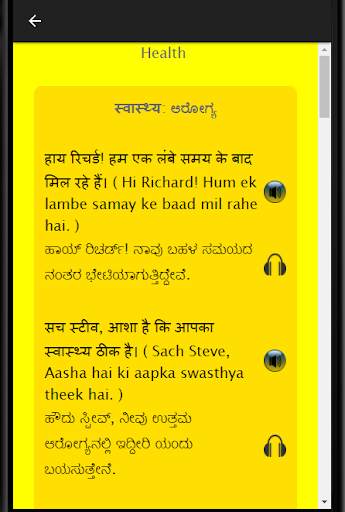 Health
स्वास्थ्य: ಆರೋಗ್ಯ
हाय रिचर्ड! हम एक लंबे समय के बाद
मिल रहे हैं। ( Hi Richard! Hum ek
lambe samay ke baad mil rahe
hai. )
ಹಾಯ್ ರಿಚರ್ಡ್! ನಾವು ಬಹಳ ಸಮಯದ
ನಂತರ ಭೇಟಿಯಾಗುತ್ತಿದ್ದೇವೆ.
सच स्टीव, आशा है कि आपका
स्वास्थ्य ठीक है। ( Sach Steve,
Aasha hai ki aapka swasthya
theek hai. )
ಹೌದು ಸ್ಟೀವ್, ನೀವು ಉತ್ತಮ
ಆರೋಗ್ಯನಲ್ಲಿ ಇದ್ದೀರಿ ಯಂದು
ಬಯಸುತ್ತೇನೆ.